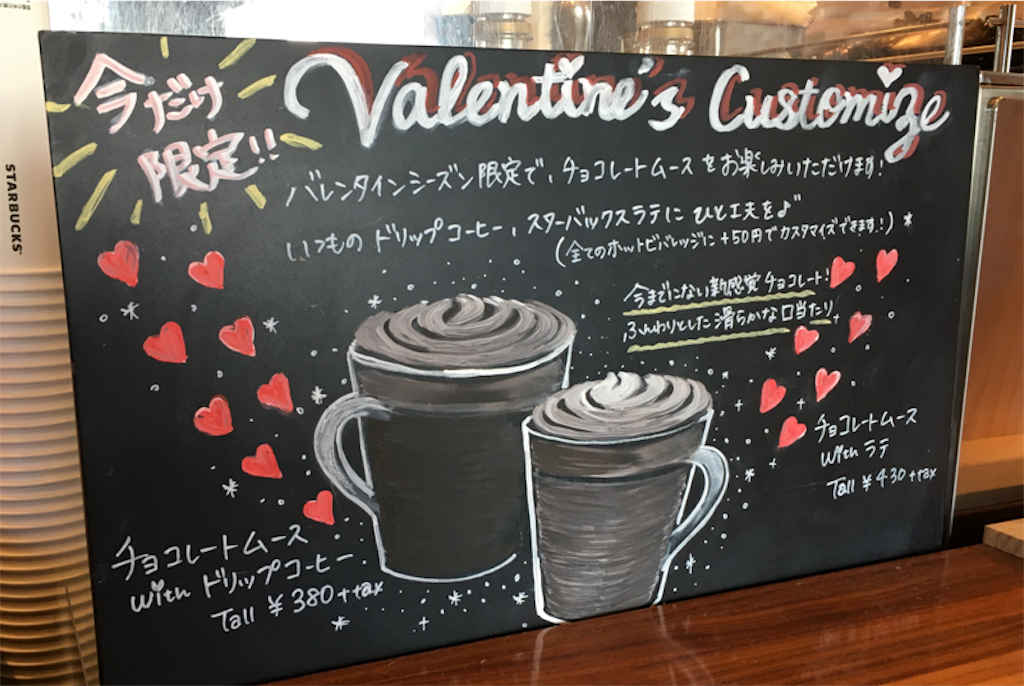 STARBUCKS
今だけ
限定!!
Valentine's Customize
バレンタインシーズン限定で、チョコレートムースをお楽しみいただけます!
いつもの ドリップコーヒー、スターバックスラテに ひと工夫を♪
(全てのホットビバレッジに +50円でカスタマイズできます!)*
今までにない新感覚チョコレート!
ふんわりとした滑らかな口当たり
チョコレートムース
with ラテ
Tall ¥430+tax
チョコレートムース
with ドリップコーヒー
Tall ¥380+tax